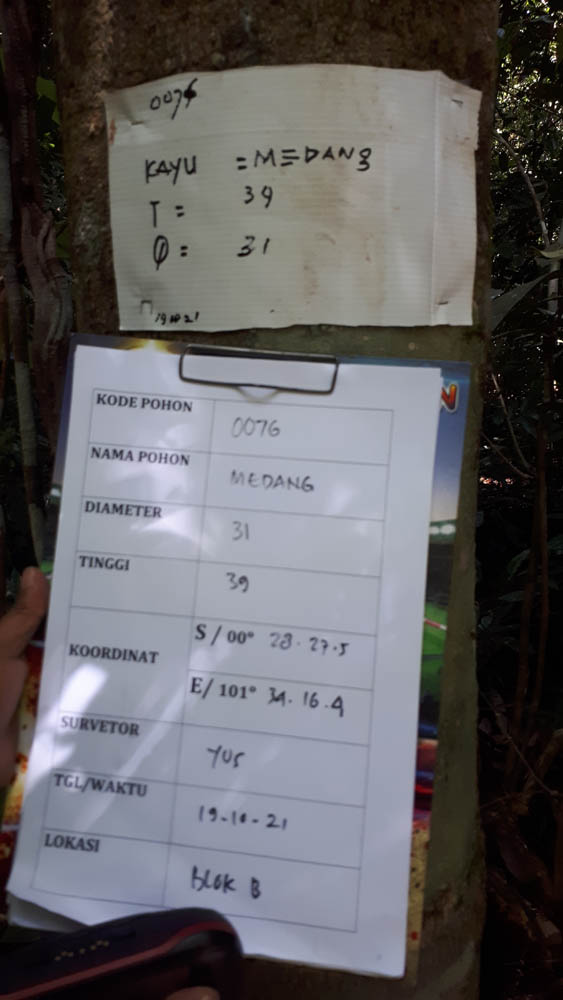 0076
KAYU = MEDANG
T = 39
Ø = 31
19 10 21
N
KODE POHON 0076
NAMA POHON MEDANG
DIAMETER 31
TINGGI 39
KOORDINAT S / 00° 28. 27.5
E/ 101° 34. 16.4
SURVETOR YUS
TGL/WAKTU 19-10-21
LOKASI BLOK B